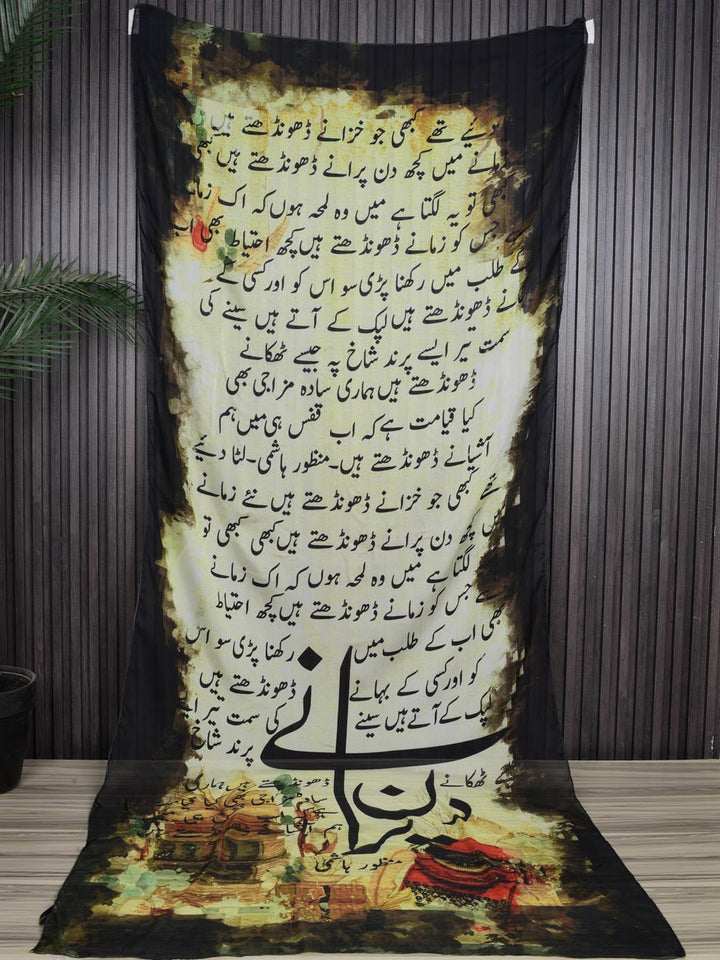 دیئے تھے کبھی جو خزانے ڈھونڈھتے ہیں
زمانے میں کچھ دن پرانے ڈھونڈھتے ہیں کبھی
کبھی تو یہ لگتا ہے میں وہ لمحہ ہوں کہ اک زمانے
جس کو زمانے ڈھونڈھتے ہیں کچھ احتیاط بھی اب
کے طلب میں رکھنا پڑی سو اس کو اور کسی کے
ڈھونڈھتے ہیں لپک کے آتے ہیں سینے کی
سمت تیر ایسے پرند شاخ پہ جیسے ٹھکانے
ڈھونڈھتے ہیں ہماری سادہ مزاجی بھی
کیا قیامت ہے کہ اب قفس ہی میں ہم
آشیانے ڈھونڈھتے ہیں۔ منظور ہاشمی۔ لٹا دیئے
تھے کبھی جو خزانے ڈھونڈھتے ہیں نئے زمانے
کچھ دن پرانے ڈھونڈھتے ہیں کبھی کبھی تو
لگتا ہے میں وہ لمحہ ہوں کہ اک زمانے
جس کو زمانے ڈھونڈھتے ہیں کچھ احتیاط
بھی اب کے طلب میں رکھنا پڑی سو اس
کو اور کسی کے بہانے ڈھونڈھتے ہیں
لپک کے آتے ہیں سینے کی سمت تیر
پرند شاخ
کے ٹھکانے ڈھونڈھتے ہیں ہماری
دن پرانے
منظور ہاشمی